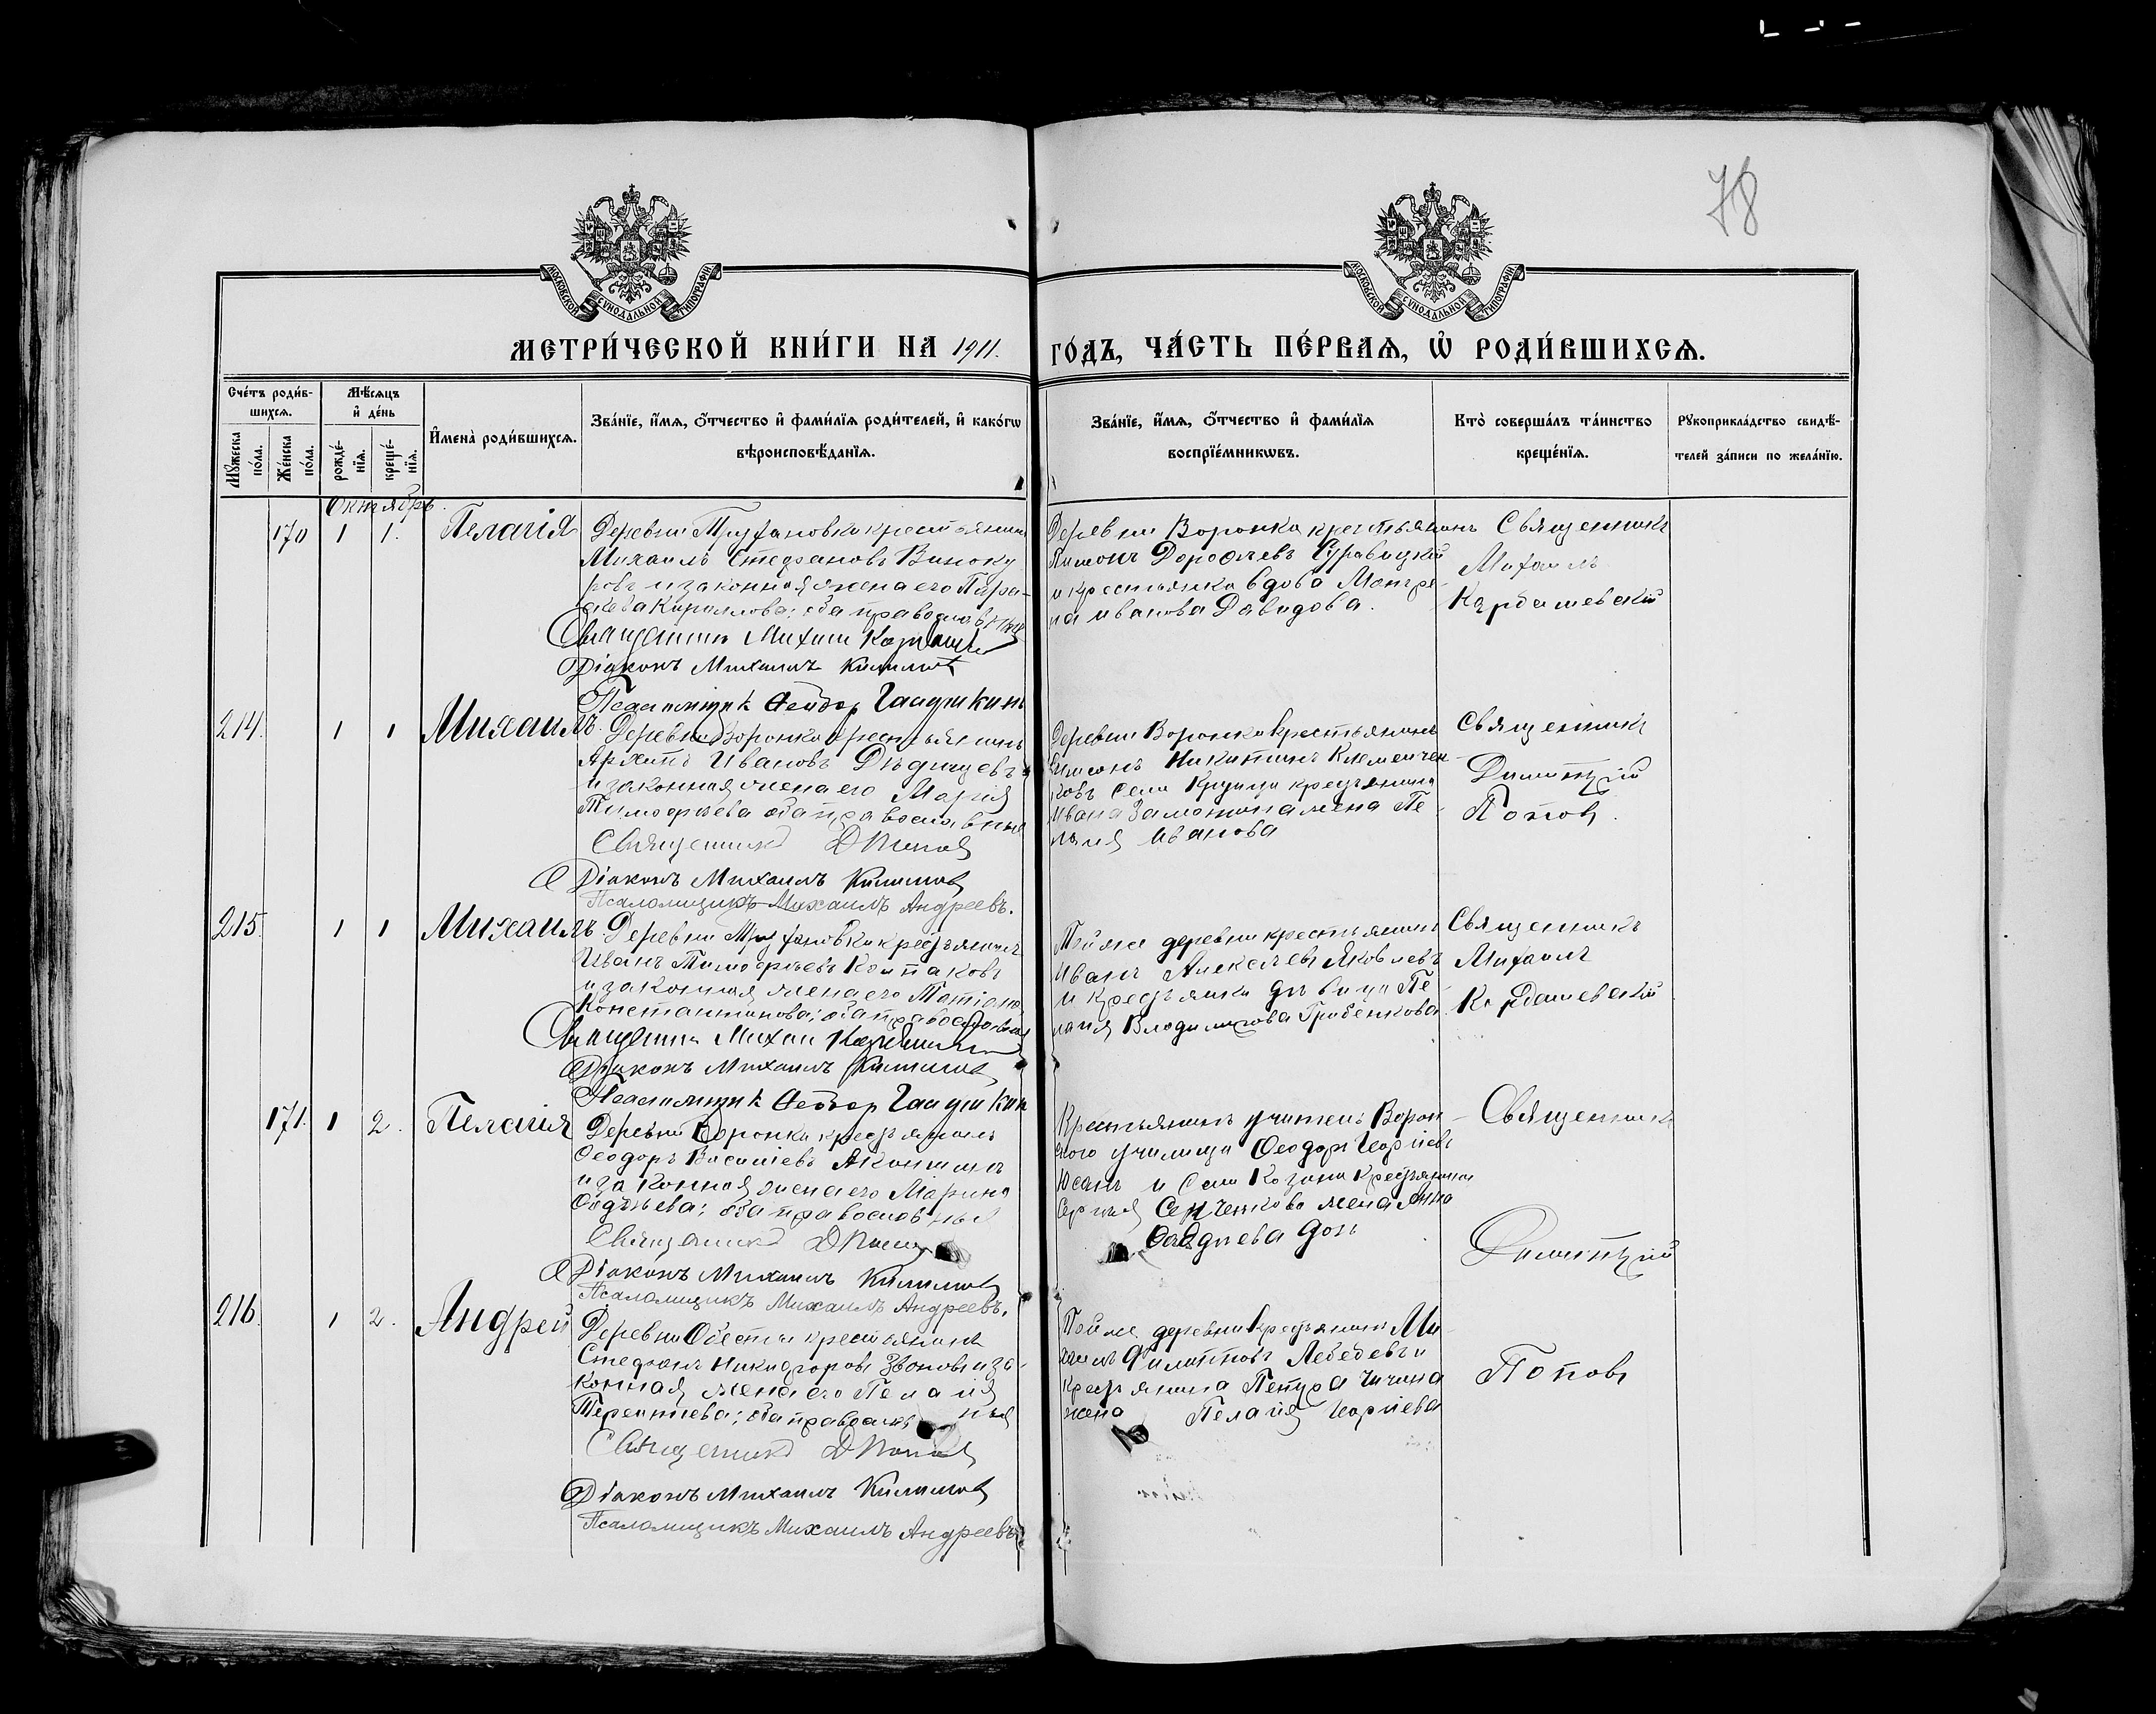 78
МОСКОВСКОЙ СѴНОДАЛЬНОЙ ТИПОГРАФІИ
МОСКОВСКОЙ СѴНОДАЛЬНОЙ ТИПОГРАФІИ
МЕТРИ́ЧЕСКОЙ КНИ́ГИ НА 1911. ГО́ДЪ, ЧА́СТЬ ПЕ́РВАЯ, Ѡ҆ РОДИ́ВШИХСЯ.
Сче́тъ роди́в-
шихся.
Мѣ́сяцъ
и҆ де́нь
Мꙋ́жеска по́ла.
Же́нска по́ла.
рожде́-нїя.
креще́-нїя.
И҆мена̀ роди́вшихся.
Зва́нїе, и҆́мя, ѻ҆́тчество и҆ фами́лїя роди́телей, и҆ како́гѡ
вѣроисповѣ́данїя.
Зва́нїе, и҆́мя, ѻ҆́тчество и҆ фами́лїя
воспрїе́мникѡвъ.
Кто̀ соверша́лъ та́инство
креще́нїя.
Рꙋкоприкла́дство свидѣ́-
телей за́писи по жела́нїю.
Октябрь.
170 1 1. Пелагія
Деревни Труфановки крестьянинъ
Михаилъ Стефановъ Виноку
ровъ и законная жена его Пара-
скева Кириллова; оба православные
Священникъ Михаил
Діаконъ Михаилъ
Псаломщик Феодор
Деревни Воронка крестьянинъ
Дорофеевъ
и крестьянка вдова Матре-
на Иванова Давидова.
Священникъ
Михаилъ
Кардашевскій
214. 1 1 Михаилъ.
Деревни Воронка крестьянинъ
Архипъ Ивановъ
и законная жена его Марія
Тимофѣева оба православные
Священникъ ДПопов
Діаконъ Михаилъ
Псаломщикъ Михаилъ Андреевъ.
Деревни Воронка крестьянинъ
Никитинъ Клеменчен
ковъ села крестьянина
Ивана жена Пе-
лагія Иванова
Священникъ
Димитрій
Поповъ.
215. 1 1 Михаилъ.
Деревни Труфановки крестьянинъ
Иванъ Тимофѣевъ Колпаковъ
и законная жена его Татіана
Константинова; оба православные
Священникъ Михаил
Діаконъ Михаилъ
Псаломщик Феодор
Той же деревни крестьянинъ
Иванъ Алексѣевъ Яковлевъ
и крестьянка дѣвица Пе-
лагія Владимирова Гребенкова.
Священникъ
Михаилъ
Кардашевскій
171. 1 2. Пелагія
Деревни Воронка крестьянинъ
Феодоръ Василіевъ Аконшинъ
и законная жена его Марина
оба православные
Священникъ ДПопов
Діаконъ Михаилъ
Псаломщикъ Михаилъ Андреевъ.
Крестьянинъ учитель Ворон-
скаго училища Феодоръ Георгіевъ
и села Козина крестьянина
Сергія жена Анна
Священникъ
Димитрій
216. 1 2. Андрей
Деревни крестьянинъ
Стефанъ Никифоровъ Звоновъ и за-
конная жена его Пелагія
Терентіева; оба православные
Священникъ ДПопов
Діаконъ Михаилъ
Псаломщикъ Михаилъ Андреевъ
Той же деревни крестьянинъ Ми-
хаилъ Филипповъ Лебедевъ и
крестьянина Петра Чичина
жена Пелагія Георгіева
Поповъ